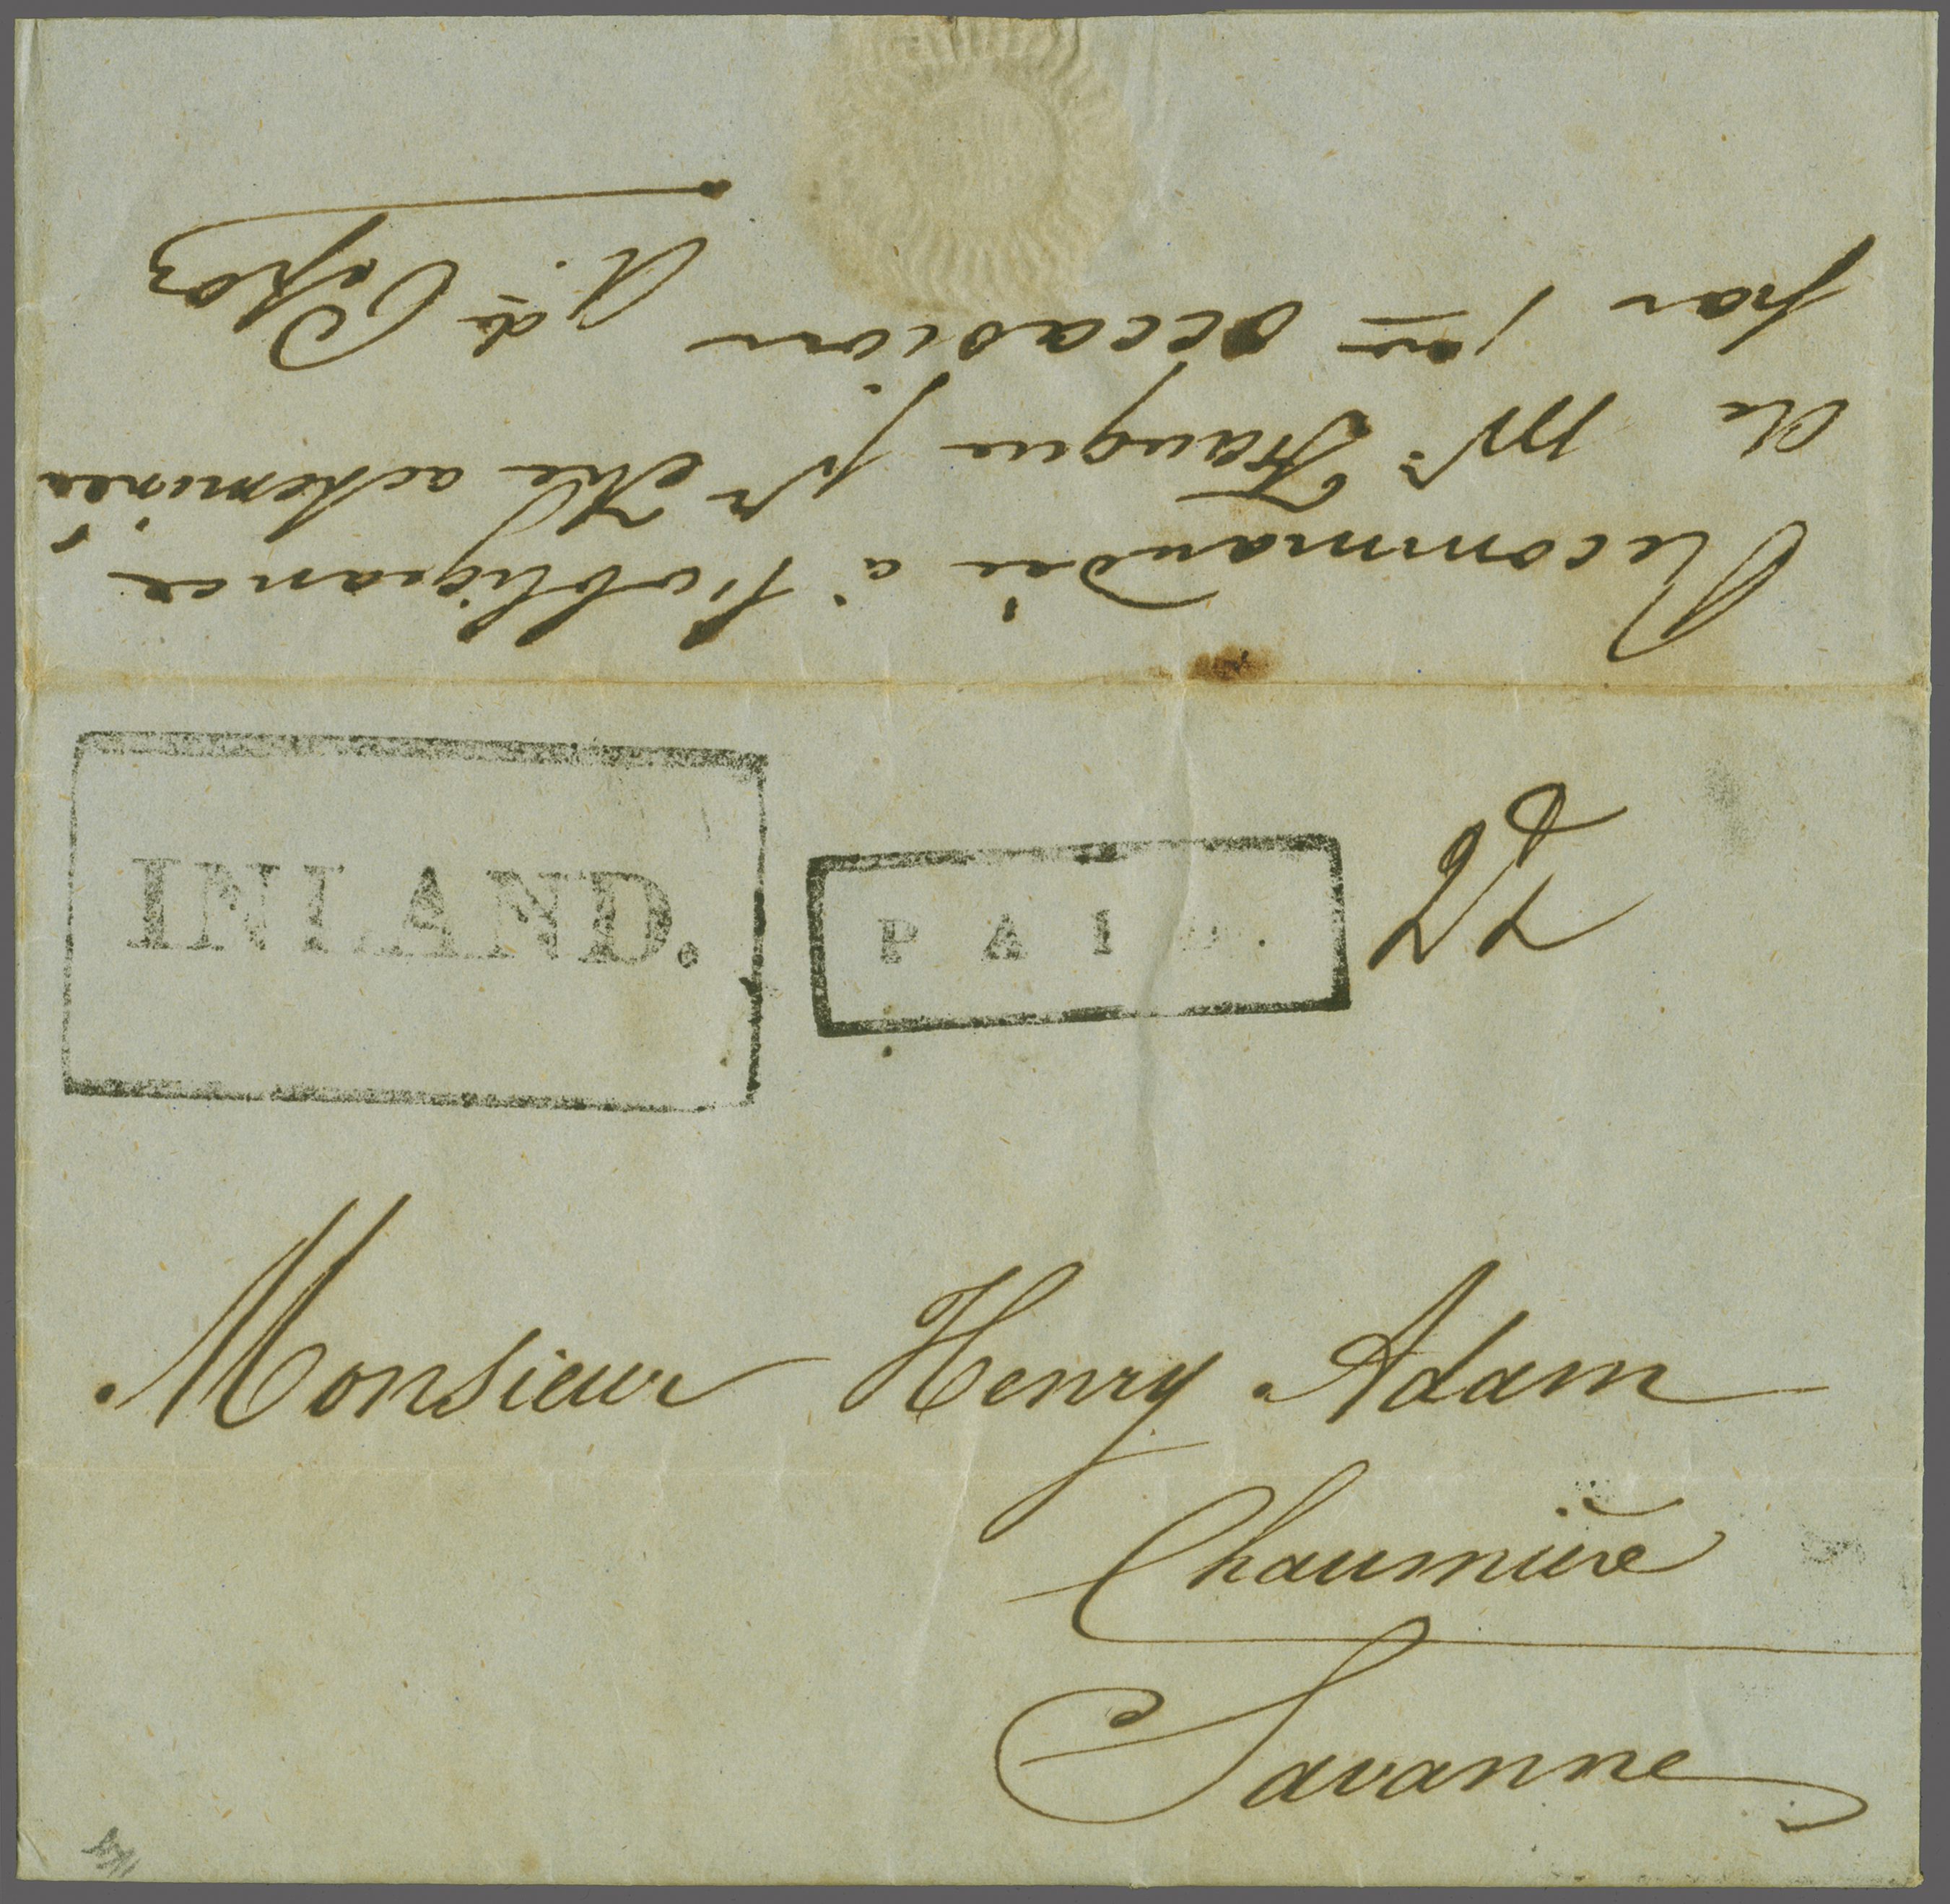 Recommandée à l'obligeance
de Mr. Fraugue pr être acheminée
par 1re occasion
INLAND.
PAID.
2d
Monsieur Henry Adam
Chaumière
Savanne